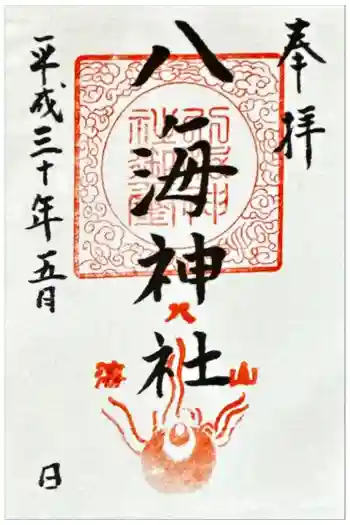 奉拝
八海神社
八
海
山
平成三十年五月　日